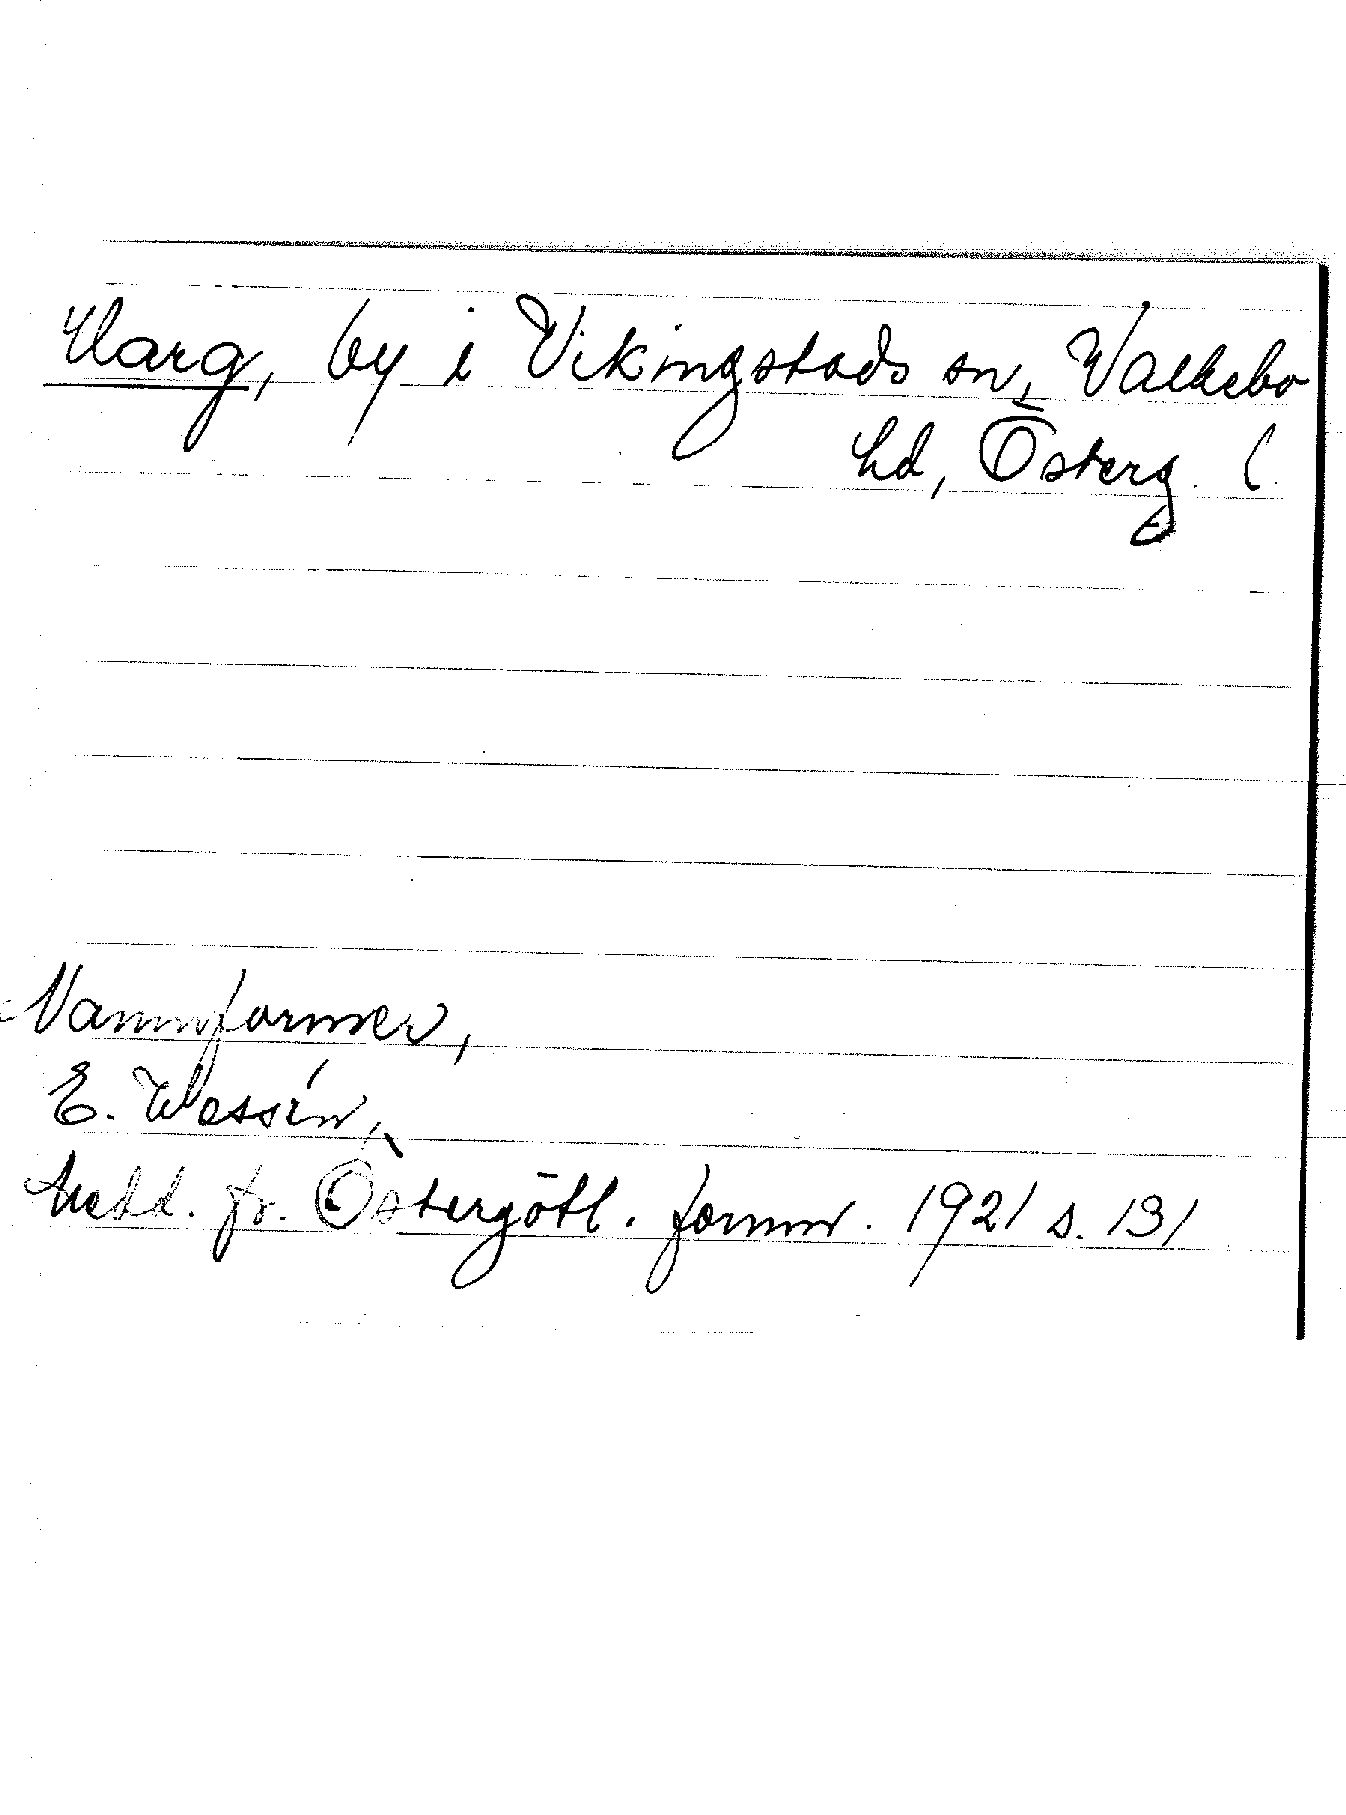 Varg, by i Vikingstads sn, Valkebo
hd, Österg. l.
Namnformer,
E. Wessén,
Medd. fr. Östergötl. fornm. 1921 s. 131